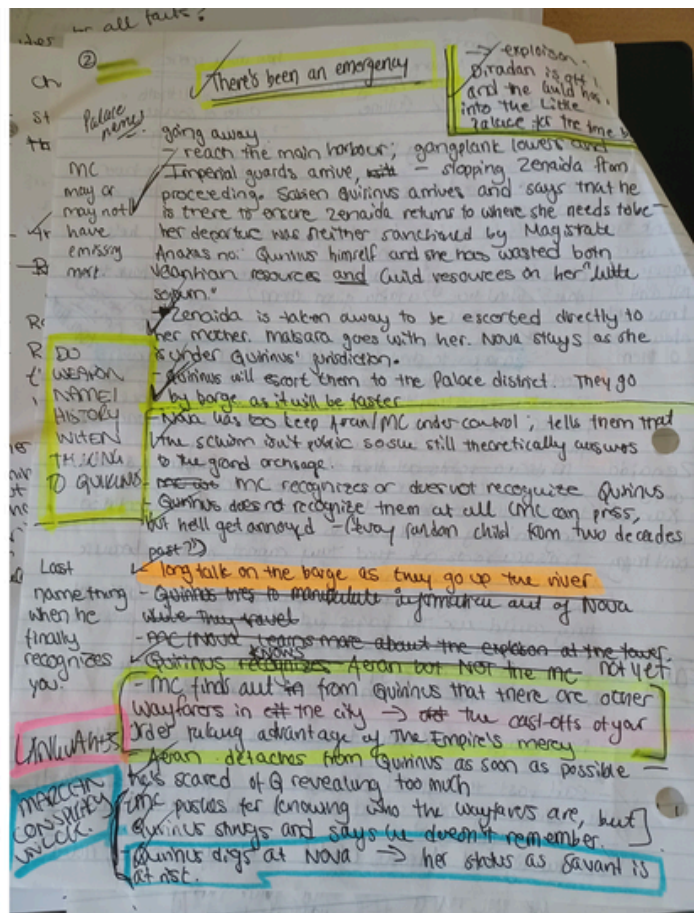 for all facts.
②
There's been an emergency
→ exploison
Diradan is off
and the Guild has
into the Little
Palace for the time b
Palace
names
going away
- reach the main harbour; gangplank lowers and
Imperial guards arrive, - stopping Zenaida from
proceeding. Sabien Quirinus arrives and says that he
is there to ensure Zenaida returns to where she needs to be -
her departure was neither sanctioned by Magistrate
Anaxas nor Quirinus himself and she has wasted both
resources and Guild resources on her "little
sojourn."
MC
may or
may not
have
emissary
mark
- Zenaida is taken away to be escorted directly to
her mother. Maisara goes with her. Nova stays as she
is under Quirinus' jurisdiction.
- Quirinus will escort them to the Palace district. They go
by barge as it will be faster
DO
WEAPON
NAME /
HISTORY
WHEN
TALKING
TO QUIRINUS
- Nova has to keep Aeran/MC under control; tells them that
the schism isn't public so she still theoretically answers
to the grand archsage.
- MC recognizes or does not recognize Quirinus
- Quirinus does not recognize them at all (MC can press,
but he'll get annoyed - (every random child from two decades
past?)
Last
name thing
when he
finally
recognizes
you.
- long talk on the barge as they go up the river
- Quirinus tries to manipulate information out of Nova
while they travel
- MC/Nova learns more about the explosion at the tower.
- Quirinus recognizes knows Aeran but NOT the MC not yet
- MC finds out from Quirinus that there are other
wayfarers in the city → the cast-offs of your
order taking advantage of the Empire's mercy
- Aeran detaches from Quirinus as soon as possible -
he's scared of Q revealing too much
MC pushes for knowing who the wayfarers are, but
Quirinus shrugs and says he doesn't remember.
CONSPIRACY
UNLOCK.
Quirinus digs at Nova → her status as Savant is
at risk.